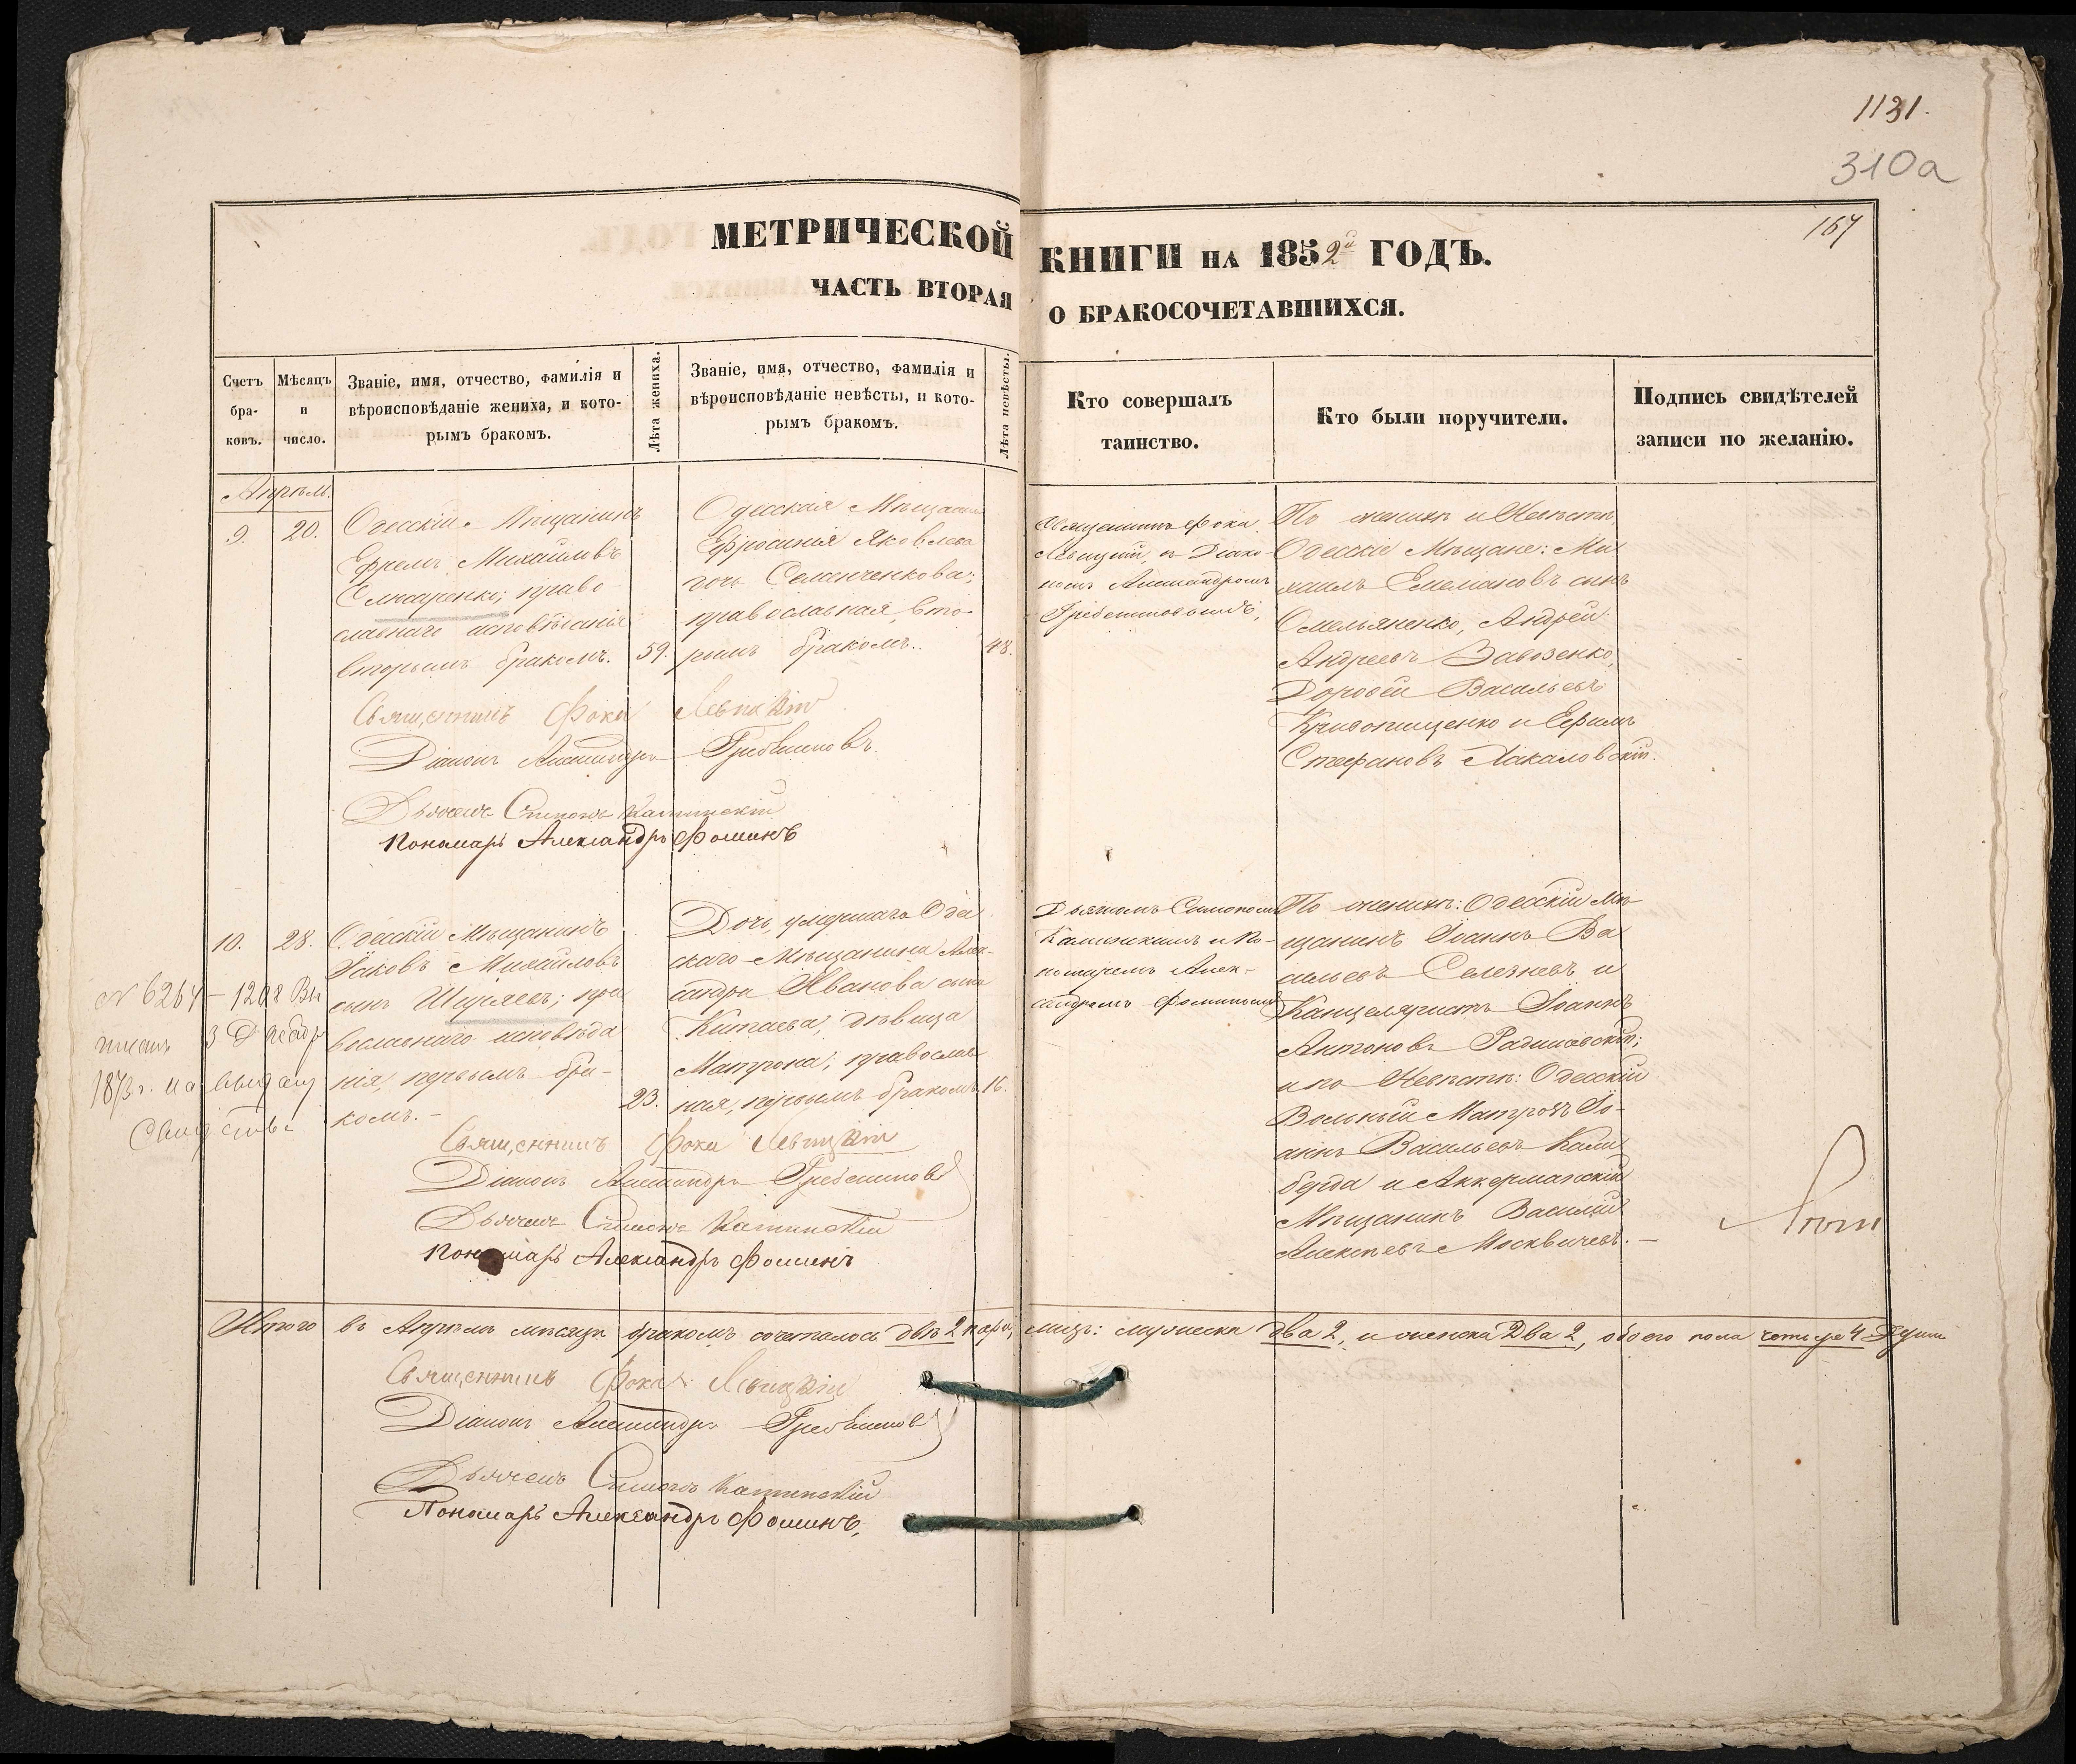 1131.
310а
167
МЕТРИЧЕСКОЙ КНИГИ НА 1852й ГОДЪ.
ЧАСТЬ ВТОРАЯ О БРАКОСОЧЕТАВШИХСЯ.
Счетъ бра-ковъ.
Мѣсяцъ и число.
Званіе, имя, отчество, фамилія и
вѣроисповѣданіе жениха, и кото-
рымъ бракомъ.
Лѣта жениха.
Званіе, имя, отчество, фамилія и
вѣроисповѣданіе невѣсты, и кото-
рымъ бракомъ.
Лѣта невѣсты.
Кто совершалъ
таинство.
Кто были поручители.
Подпись свидѣтелей
записи по желанію.
Апрѣль.
9.
20.
Одесскій Мѣщанинъ
Ефремъ Михайловъ
право-
славнаго исповѣданія
вторымъ бракомъ.
59.
Одесская Мѣщанка
Ефросинія Яковлева
дочь Селенченкова;
православная, вто-
рымъ бракомъ..
48.
Священникъ Фока
Левицкій, съ Діако-
номъ Александромъ
Гребенниковымъ,
По женихѣ и Невѣстѣ,
Одесскіе Мѣщане: Ми
хаилъ Емеліановъ сынъ
Омельяненко, Андрей
Андреевъ Завозенко,
Дорофей Васильевъ
Кривопищенко и Ефимъ
Стефановъ
Священникъ Фока Левицкій
Діаконъ Александръ Гребенниковъ.
Дьячекъ Симонъ Каминскій
Пономарь Александръ Фоминъ
10.
28.
Одесскій Мѣщанинъ
Іаковъ Михайловъ
сынъ пра
вославнаго исповѣда
нія, первымъ бра-
комъ.-
23.
Дочь умершаго Одес
скаго Мѣщанина Алек-
сандра Иванова сына
Китаева, дѣвица
Матрона; православ
ная, первымъ бракомъ.
16.
Дьячкомъ Симономъ
Каминскимъ и По-
номаремъ Алек-
сандромъ Фоминымъ
По женихѣ: Одесскій Мѣ
щанинъ Іоаннъ Ва
сильевъ Селезневъ и
Канцеляристъ Іоаннъ
Антоновъ
и по Невѣстѣ: Одесскій
Вольный Матросъ Іо-
аннъ Васильевъ Кали
берда и Аккерманскій
Мѣщанинъ Василій
Алексѣевъ Москвичевъ.-
1873 г. на выдачу
Священникъ Фока Левицкій
Діаконъ Александръ Гребенниковъ
Дьячекъ Симонъ Каминскій
Пономарь Александръ Фоминъ
Итого въ Апрѣлѣ мѣсяцѣ бракомъ сочеталось двѣ 2 пары, лицъ: мужеска два 2, и женска два 2, обоего пола четыре 4 души
Священникъ Фока Левицкій
Діаконъ Александръ Гребенниковъ
Дьячекъ Симонъ Каминскій
Пономарь Александръ Фоминъ,